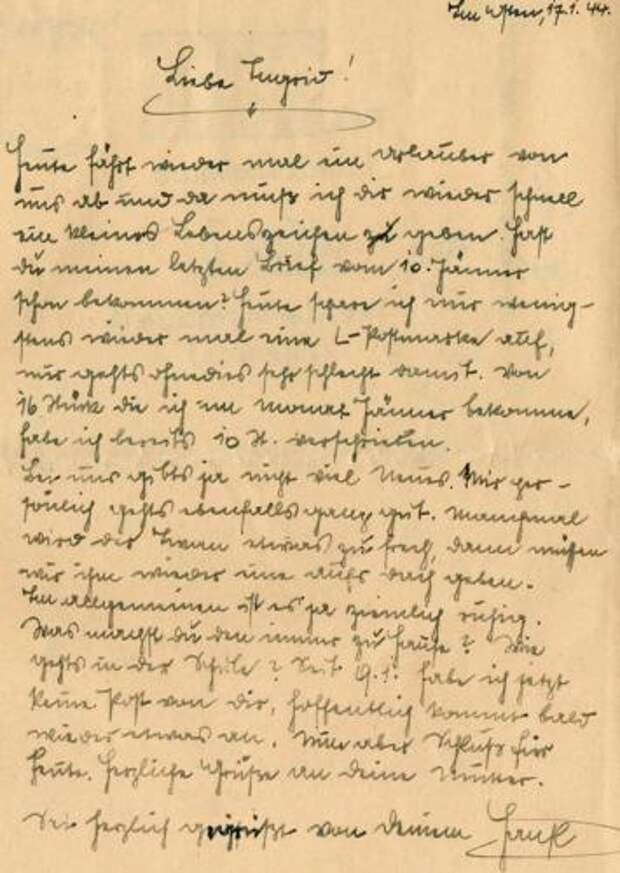 Im Osten, 17.1.44.
Liebe Ingrid!
Heute fährt wieder mal ein Urlauber von
uns ab und da muß ich dir wieder schnell
ein kleines Lebenszeichen zu geben. Hast
du meinen letzten Brief vom 10. Jänner
schon bekommen? Heute spare ich mir wenig-
stens wieder mal eine L-Postmarke auf,
mir gehts ohnedies sehr schlecht damit. Von
16 Stück die ich im Monat Jänner bekomme,
habe ich bereits 10 St. verschrieben.
Bei uns gibts ja nicht viel Neues. Mir per-
sönlich gehts ebenfalls ganz gut. Manchmal
wird der Iwan etwas zu frech, dann müßen
wir ihm wieder eine aufs dach geben.
Im allgemeinen ist es ja ziemlich ruhig.
Was machst du den immer zu Hause? Wie
gehts in der Schule? Seit 9.1. habe ich jetzt
keine Post von dir, hoffentlich kommt bald
wieder etwas an. Nun aber Schluß für
heute. Herzliche Grüße an deine Mutter.
Sei herzlich gegrüßt von deinem